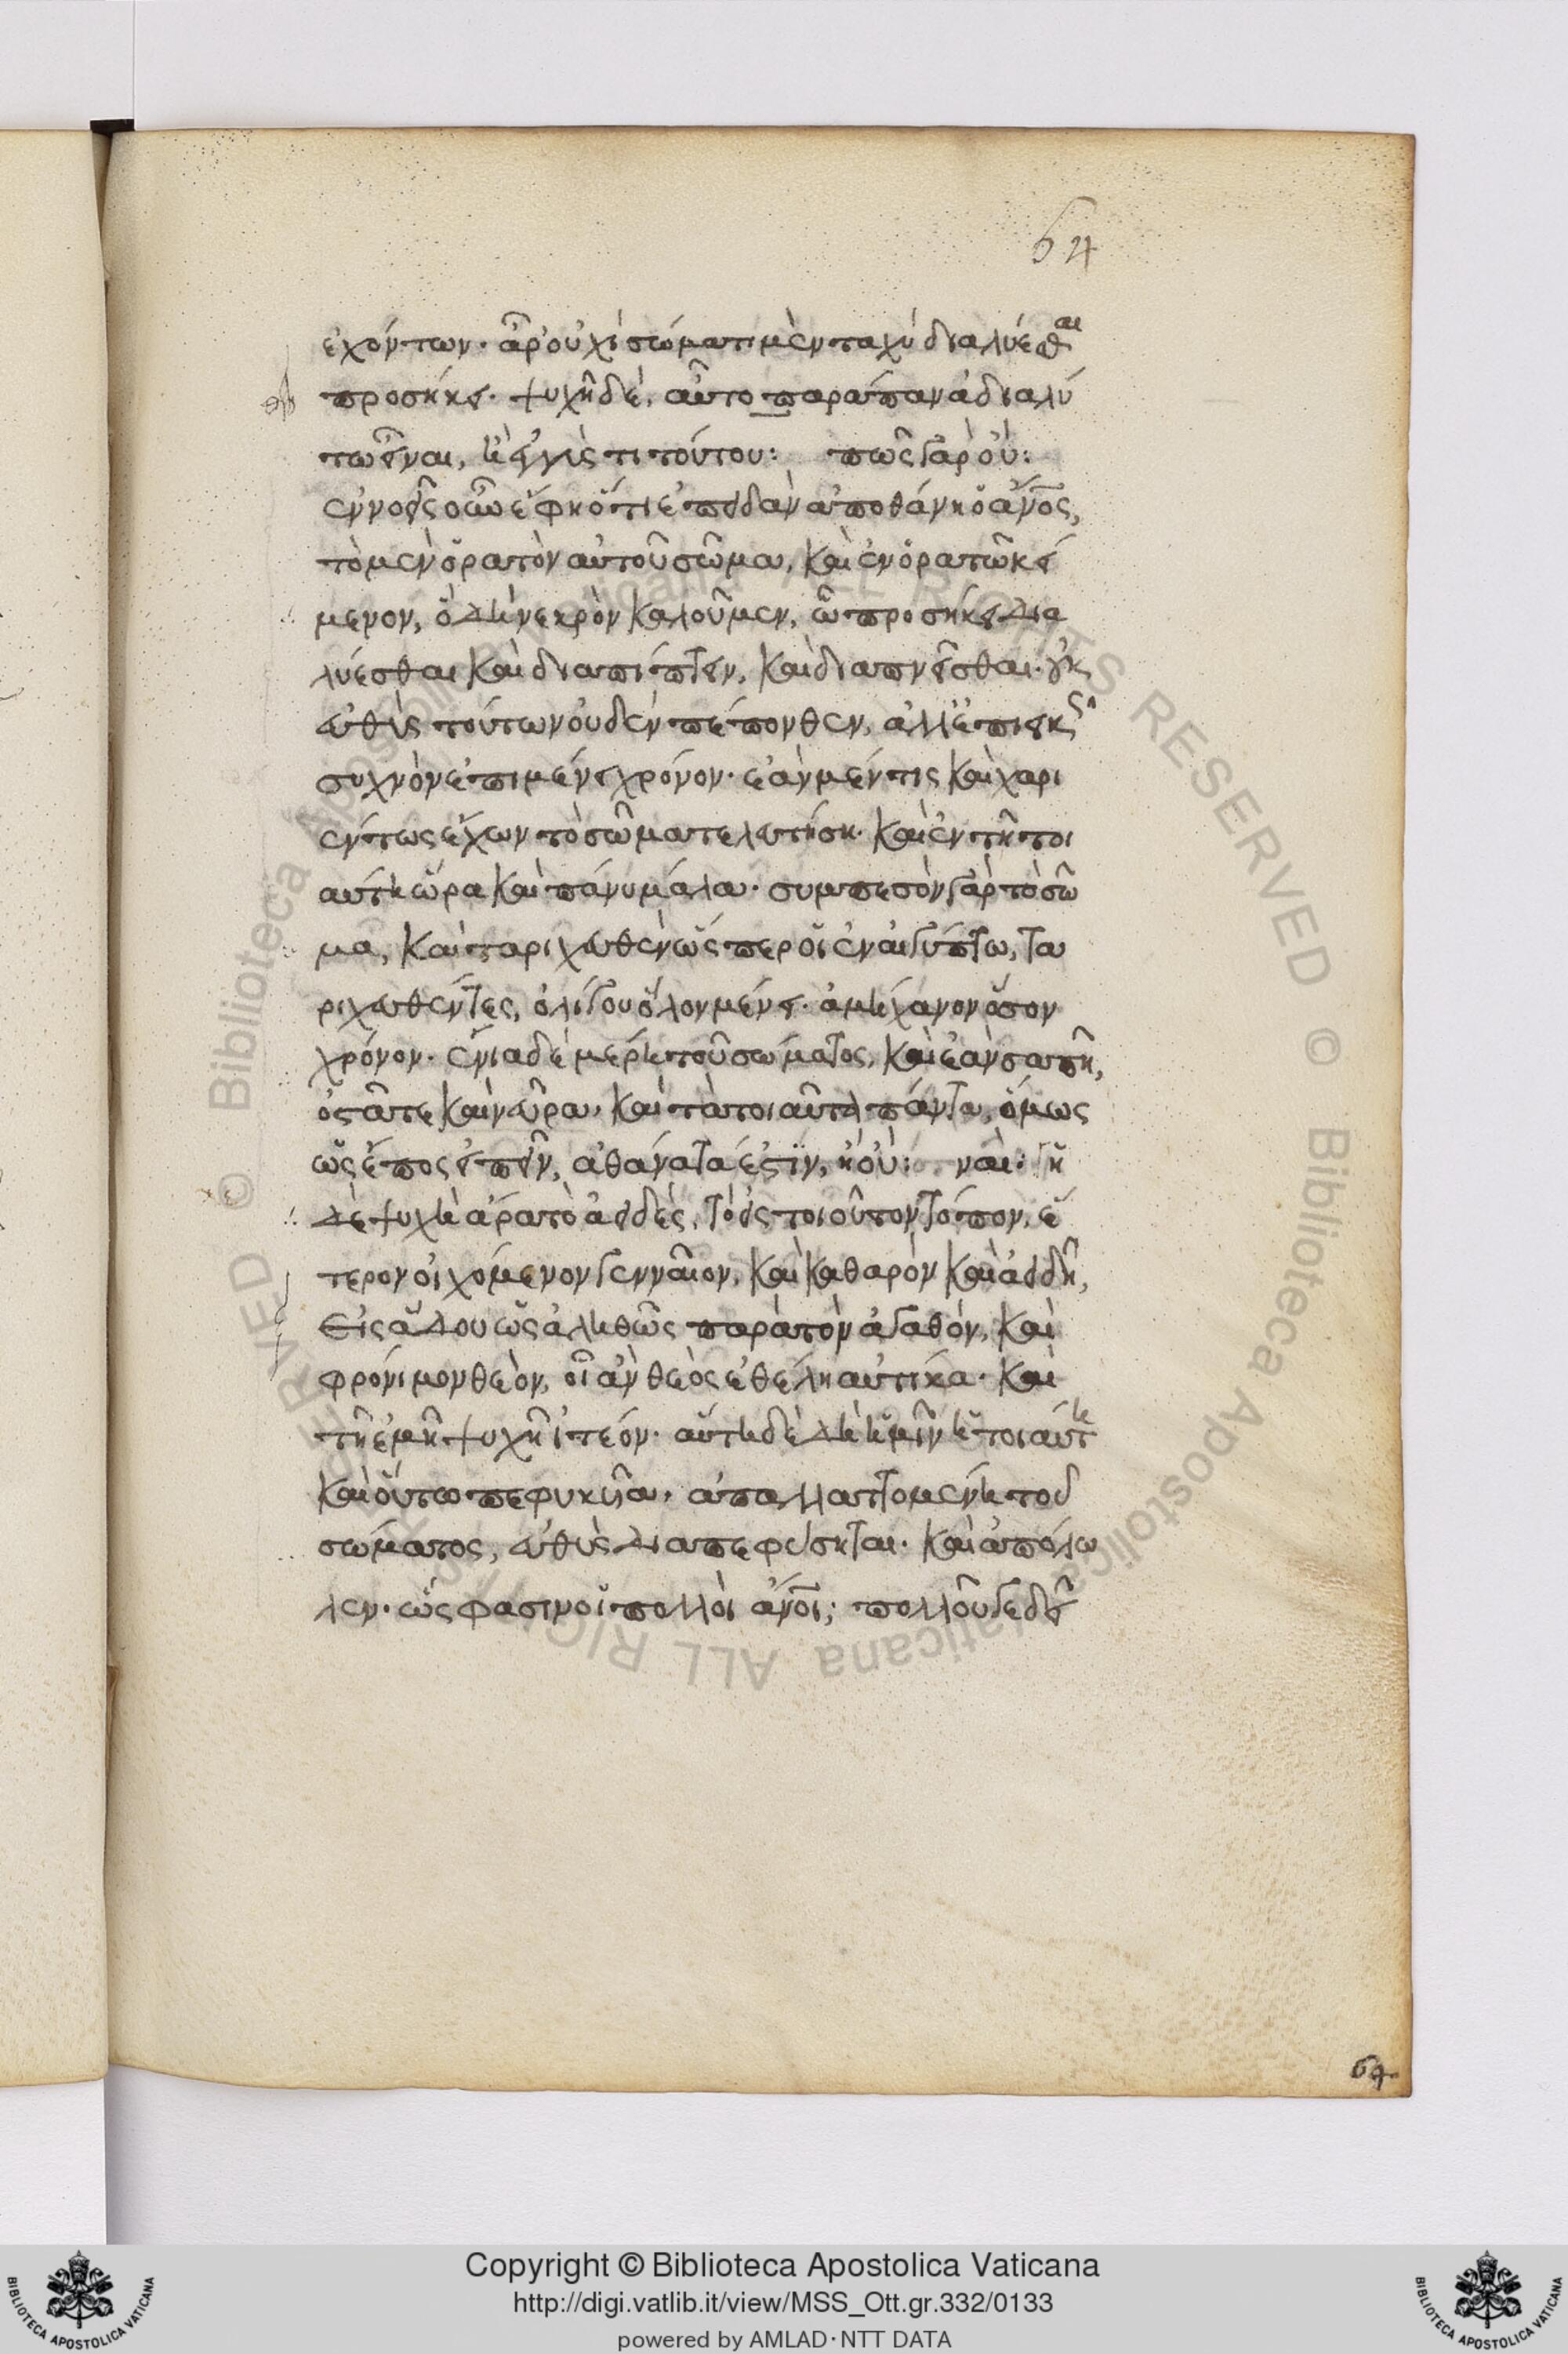 64
ἐχόντων· ἆρ' οὐχὶ σώματι μὲν ταχὺ διαλύεσθαι
προσήκει· ψυχῆ δὲ, αὖτο παράπαν ἀδιαλύ
τω εἶναι, ἢ ἐγγύς τι τούτου: πῶς γὰρ οὔ:
ἐννοεῖς οὖν ἔφη ὅτι ἐπειδὰν ἀποθάνη ὁ ἄνος,
τὸ μὲν ὁρατὸν αὐτοῦ σῶμα, καὶ ἐν ὁρατῶ κεί
μενον, ὃ δὴ νεκρὸν καλοῦμεν, ὧ προσήκει δια
λύεσθαι καὶ διαπίπτειν, καὶ διαπνεῖσθαι· οὐκ
εὐθὺς τούτων οὐδὲν πέπονθεν, ἀλλ' ἐπιεικῶς
συχνὸν ἐπιμένει χρόνον· ἐὰν μέν τις καὶ χαρι
έντως ἔχων τὸ σῶμα τελευτήση· καὶ ἐν τῆ τοι
αύτη ὥρα καὶ πάνυ μάλα· συμπεσὸν γὰρ τὸ σῶ
μα, καὶ ταριχευθὲν ὥσπερ οἱ ἐν αἰγύπτω, τα
ριχευθέντες, ὀλίγου ὅλον μένει· ἀμήχανον ὅσον
χρόνον· ἔνια δὲ μέρη τοῦ σώματος, καὶ ἐὰν σαπῆ,
ὀστᾶ τε καὶ νεῦρα, καὶ τὰ τοιαῦτα πάντα, ὅμως
ὡς ἔπος εἰπεῖν, ἀθάνατά ἐστιν, ἢ οὔ: ναί: ἡ
δὲ ψυχὴ ἄρα τὸ ἀειδὲς, τὸ εἰς τοιοῦτον τόπον, ἕ
τερον οἰχόμενον γενναῖον, καὶ καθαρὸν καὶ ἀειδῆ,
Εἰς ἅδου ὡς ἀληθῶς παρὰ τὸν ἀγαθὸν, καὶ
φρόνιμον θεὸν, οἷ ἂν θεὸς ἐθέλη αὐτίκα· καὶ
τῆ ἐμῆ ψυχῆ ἰτέον· αὕτη δὲ δὴ ἡμῖν ἡ τοιαύτη
καὶ οὕτω πεφυκυῖα, ἀπαλλαττομένη τοῦ
σώματος, εὐθὺς διαπεφύσηται· καὶ ἀπόλω
λεν· ὥς φασιν οἱ πολλοὶ ἄνοι; πολλοῦ γε δεῖ
64
Copyright © Biblioteca Apostolica Vaticana
http://digi.vatlib.it/view/MSS_Ott.gr.332/0133
powered by AMLAD·NTT DATA